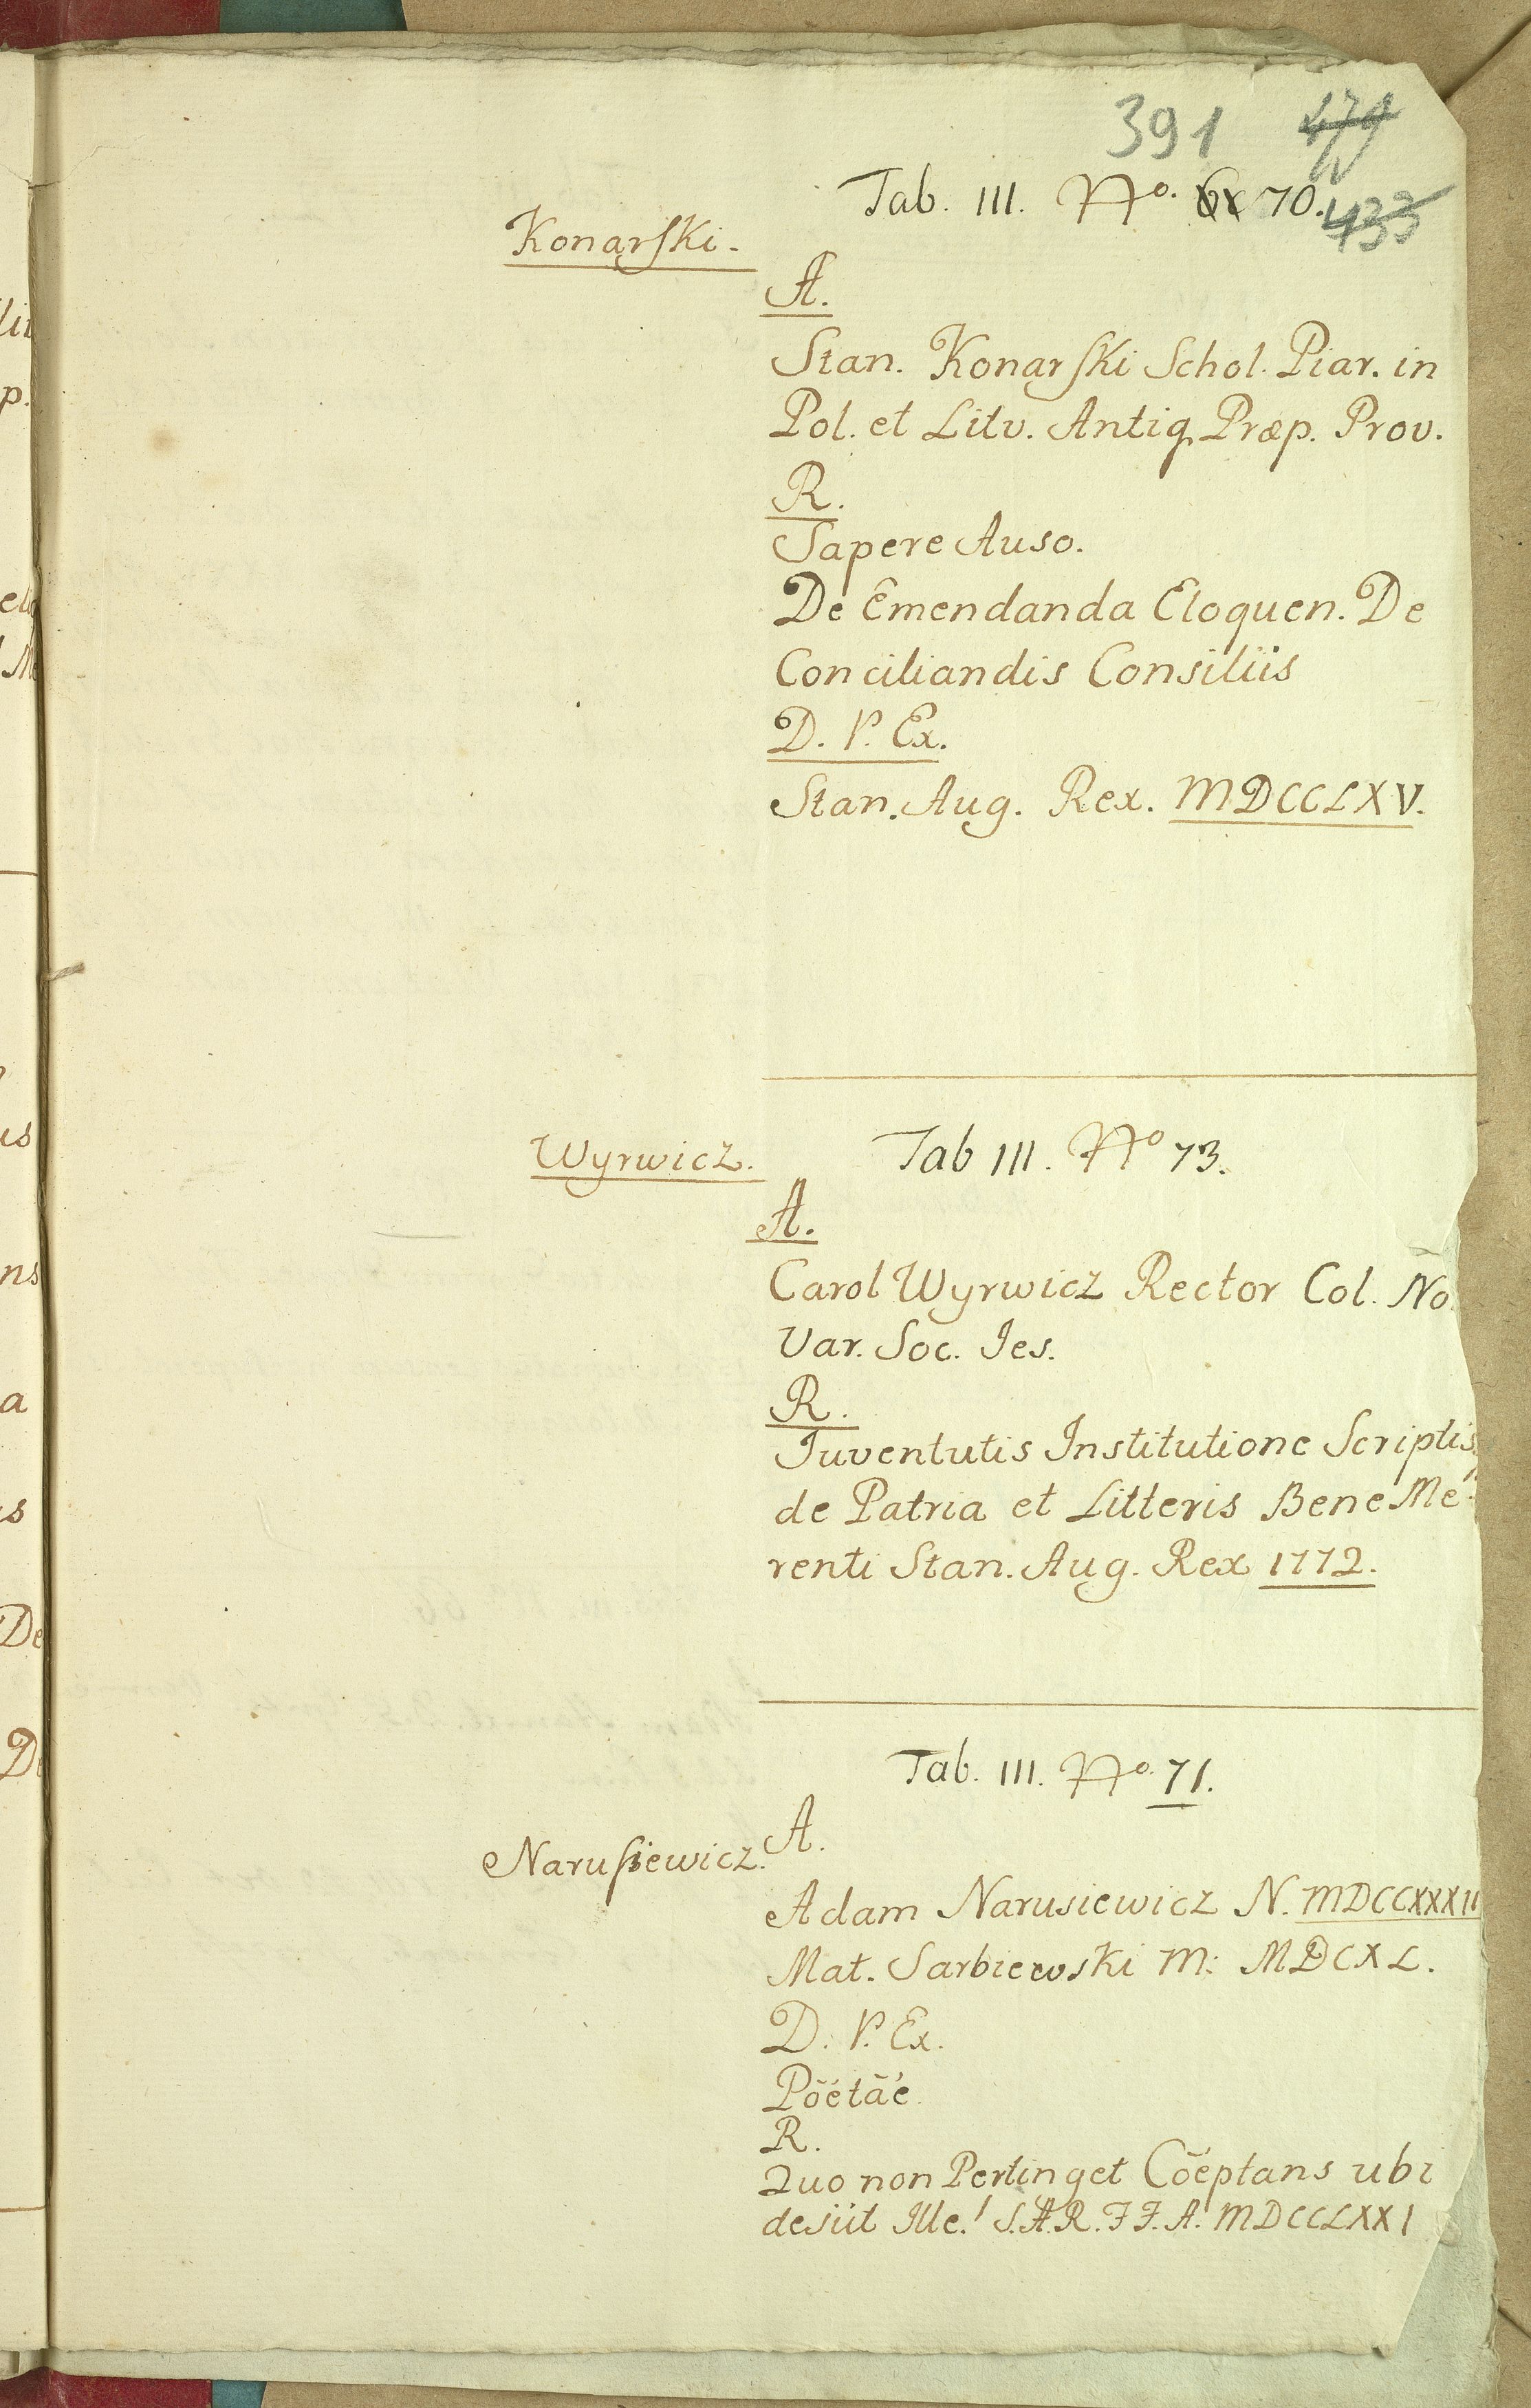 391 479
Tab. III. No. 6x 70. 433
Konarſki.
A.
Stan. Konarſki Schol. Piar. in
Pol. et Litv. Antiq Præp. Prov.
R.
Sapere Auso.
De Emendanda Eloquen. De
Conciliandis Consiliis
D. V. Ex.
Stan. Aug. Rex. MDCCLXV.
Wyrwicz. Tab III. No 73.
A.
Carol Wyrwicz Rector Col. No
Var. Soc. Ies.
R.
Iuventutis Institutione Scriptis
de Patria et Litteris Bene Me-
renti Stan. Aug. Rex 1772.
Tab. III. No. 71.
A.
Naruſiewicz.
Adam Narusiewicz N. MDCCXXXII
Mat. Sarbiewski M: MDCXL.
D. V. Ex.
Pöetäe
R.
Quo non Pertinget Cöeptans ubi
desiit Ille! S.A.R.F.F.A. MDCCLXXI